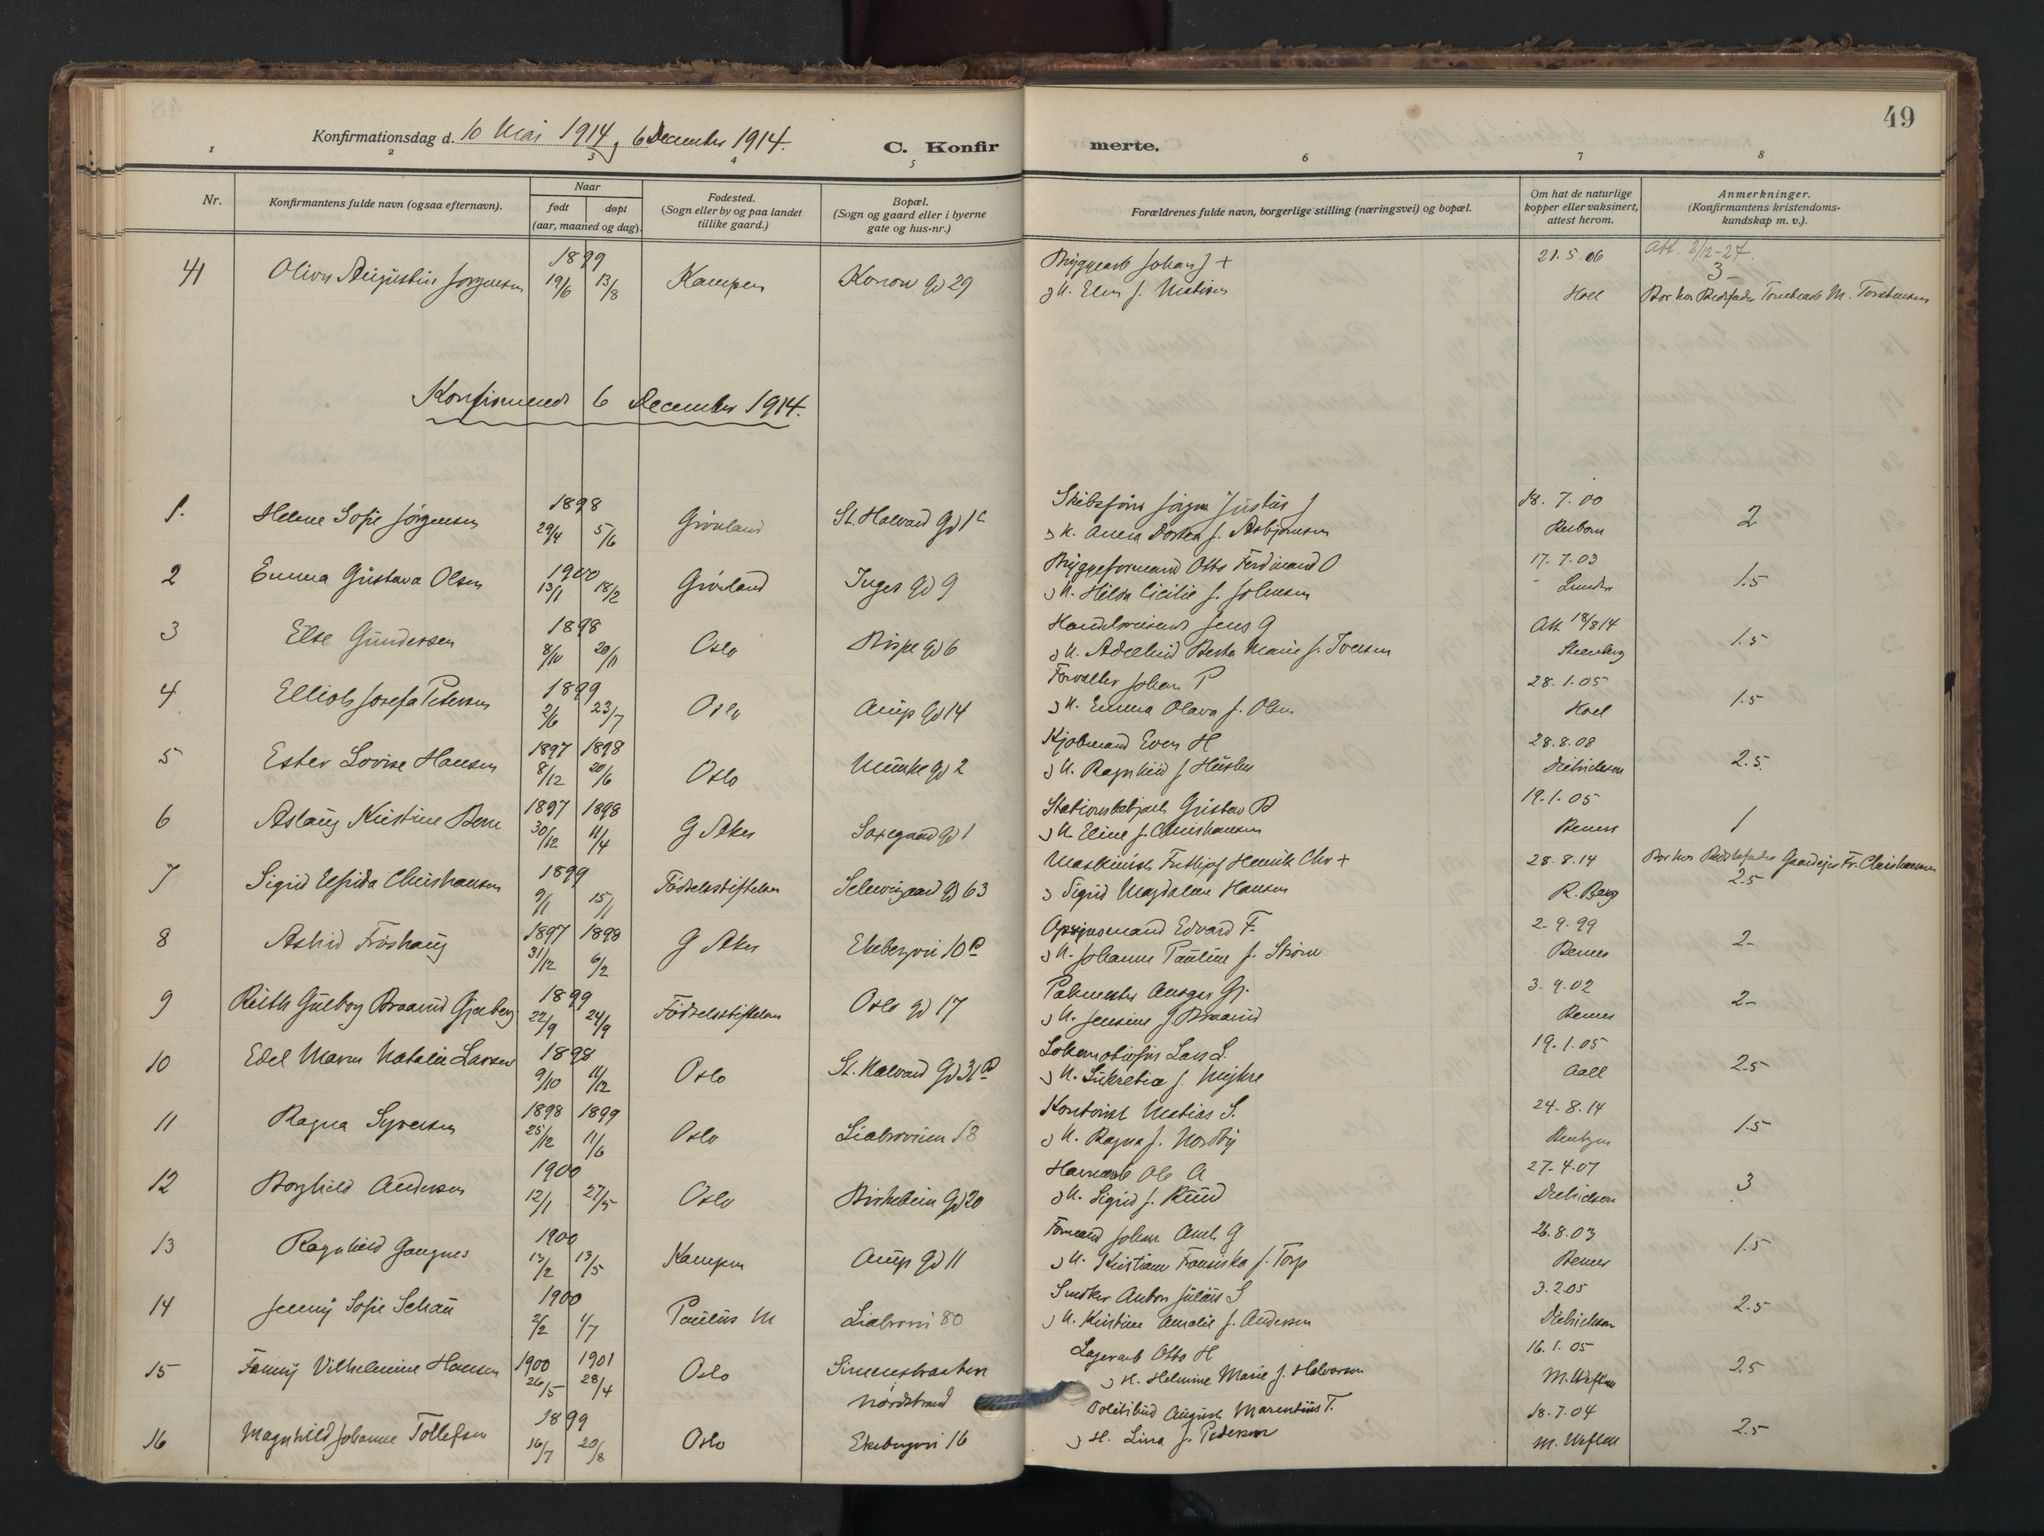 49
Konfirmationsdag d. 10 Mai 1914, 6 December 1914.
C. Konfirmerte.
1 2 3 4 5 6 7 8
Nr. Konfirmantens fulde navn (ogsaa efternavn). Naar født døpt (aar, maaned og dag). Fødested. (Sogn eller by og paa landet tillike gaard.) Bopæl. (Sogn og gaard eller i byerne gate og hus-nr.) Forældrenes fulde navn, borgerlige stilling (næringsvei) og bopæl. Om hat de naturlige kopper eller vaksinert, attest herom. Anmerkninger. (Konfirmantens kristendoms-kundskap m. v.).
1899 Bryggearb Johan J + 21.5.06 Att. 2/12-27.
41 Augustin Jørgensen 19/6 13/8 Kampen Konow Gd 29 3-
Hoel Bor hos Bedstfader M. Torstensen
Konfirmerede 6 December 1914.
1898 Skibsfører Jørgen Justus J 18.7.00
1. Helene Sofie Jørgensen 29/4 5/6 Grønland St. Halvard Gd 1c f. Asbjørnsen 2
1900 Bryggeformand Otto Ferdinand O 17.7.03
2 Emma Gustava Olsen 13/1 18/2 Grønland Inges Gd 9 H. Hilda Cicilie f. Johnsen Lunder 1.5
1898 Jens G Att 18/8 14
3 Else Gundersen 8/10 20/11 Oslo Bispe Gd 6 Marie f. Iversen Steenberg 1.5
1899 Forvalter Johan P 28.1.05
4 Josefa Petersen 2/6 23/7 Oslo Arup Gd 14 H. Emma Olava f. Olsen Hoel 1.5
1897 1898 Kjøbmand Even H 28.8.08
5 Ester Lovise Hansen 8/12 20/6 Oslo Munke Gd 2 H. Ragnhild f. Dietrichson 2.5
1897 1898 Gustav B 19.1.05
6 Aslaug Kristine 30/12 11/4 G Aker Saxegaard Gd 1 H. Eline f. Christiansen Bemer 1
1899 Maskinist Frithjof Henrik Chr + 28.8.14 Bor hos Gaardejer Fr. Christiansen
7 Sigrid Christiansen 9/1 15/1 Fødselsstiftelsen Schweigaard Gd 63 Sigrid Magdalene Hansen R. Berg 2.5
1897 1898 Opsynsmand Edvard F. 2-9.99
8 Astrid Frøshaug 31/12 6/2 G Aker Ekebergvei 10 H. Johanne Pauline f. Strøm Bemer 2-
1899 Pakmester Ansgar Gj. 3.9.02
9 Ruth Gulborg Braarud Gjerberg 22/9 24/9 Fødselsstiftelsen Oslo Gd 17 H. Jensine f Braarud Bemer 2-
1898 Lars L. 19.1.05
10 Edel Maren Natalie Larsen 9/10 11/12 Oslo St. Halvard Gd 31 H. Lukretia f. Myhre Aall 2.5
1898 1899 Kontorist Matias S. 24-8.14
11 Ragna Syversen 25/12 11/6 Oslo Liabroveien 18 H. Ragna f. Nordby Bentzen 1.5
1900 Havnearb Ole A 27-4.07
12 Borghild Andersen 12/1 27/5 Oslo Birkebein Gd 20 H. Sigrid f. Ruud Dietrichson 3
1900 Formand Johan G 26.8.03
13 Ragnhild Gangnes 13/2 13/5 Kampen Arup Gd 11 H. Kristiane Fransiska f. Torp Bemer 1.5
1900 Snekker Anton Julius S 3.2.05
14 Jenny Sofie Schau 2/2 1/7 Paulus M Liabrovei 80 H. Kristine Amalie f. Andersen Dietrichson 2.5
1900 1901 Lagerarb Otto H 16.1.05
15 Fanny Vilhelmine Hansen 26/5 28/4 Oslo Simensbraaten Nordstrand H. Helmine Marie f. Halvorsen M. Wefling 2.5
1899 Politibud August Marentius T. 18.7.04
16 Magnhild Johanne Tollefsen 16/7 20/8 Oslo Ekebergvei 16 H. Lina f. Pedersen 2.5